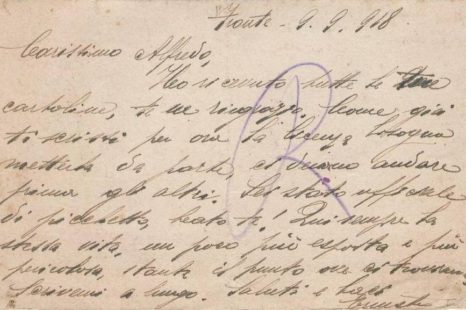 Fronte 9.9.918
Carissimo Alfredo,
Ho ricevuto tutte le tue
cartoline, te ne ringrazio. Come già
ti scrissi per ora la licenza bisogna
metterla da parte, ci devono andare
prima gli altri. Sei stato ufficiale
di picchetto, beato te! Qui sempre la
stessa vita, un poco più esposta e più
pericolosa, stante il punto ove ci troviamo.
Scrivimi a lungo. Saluti e baci
R